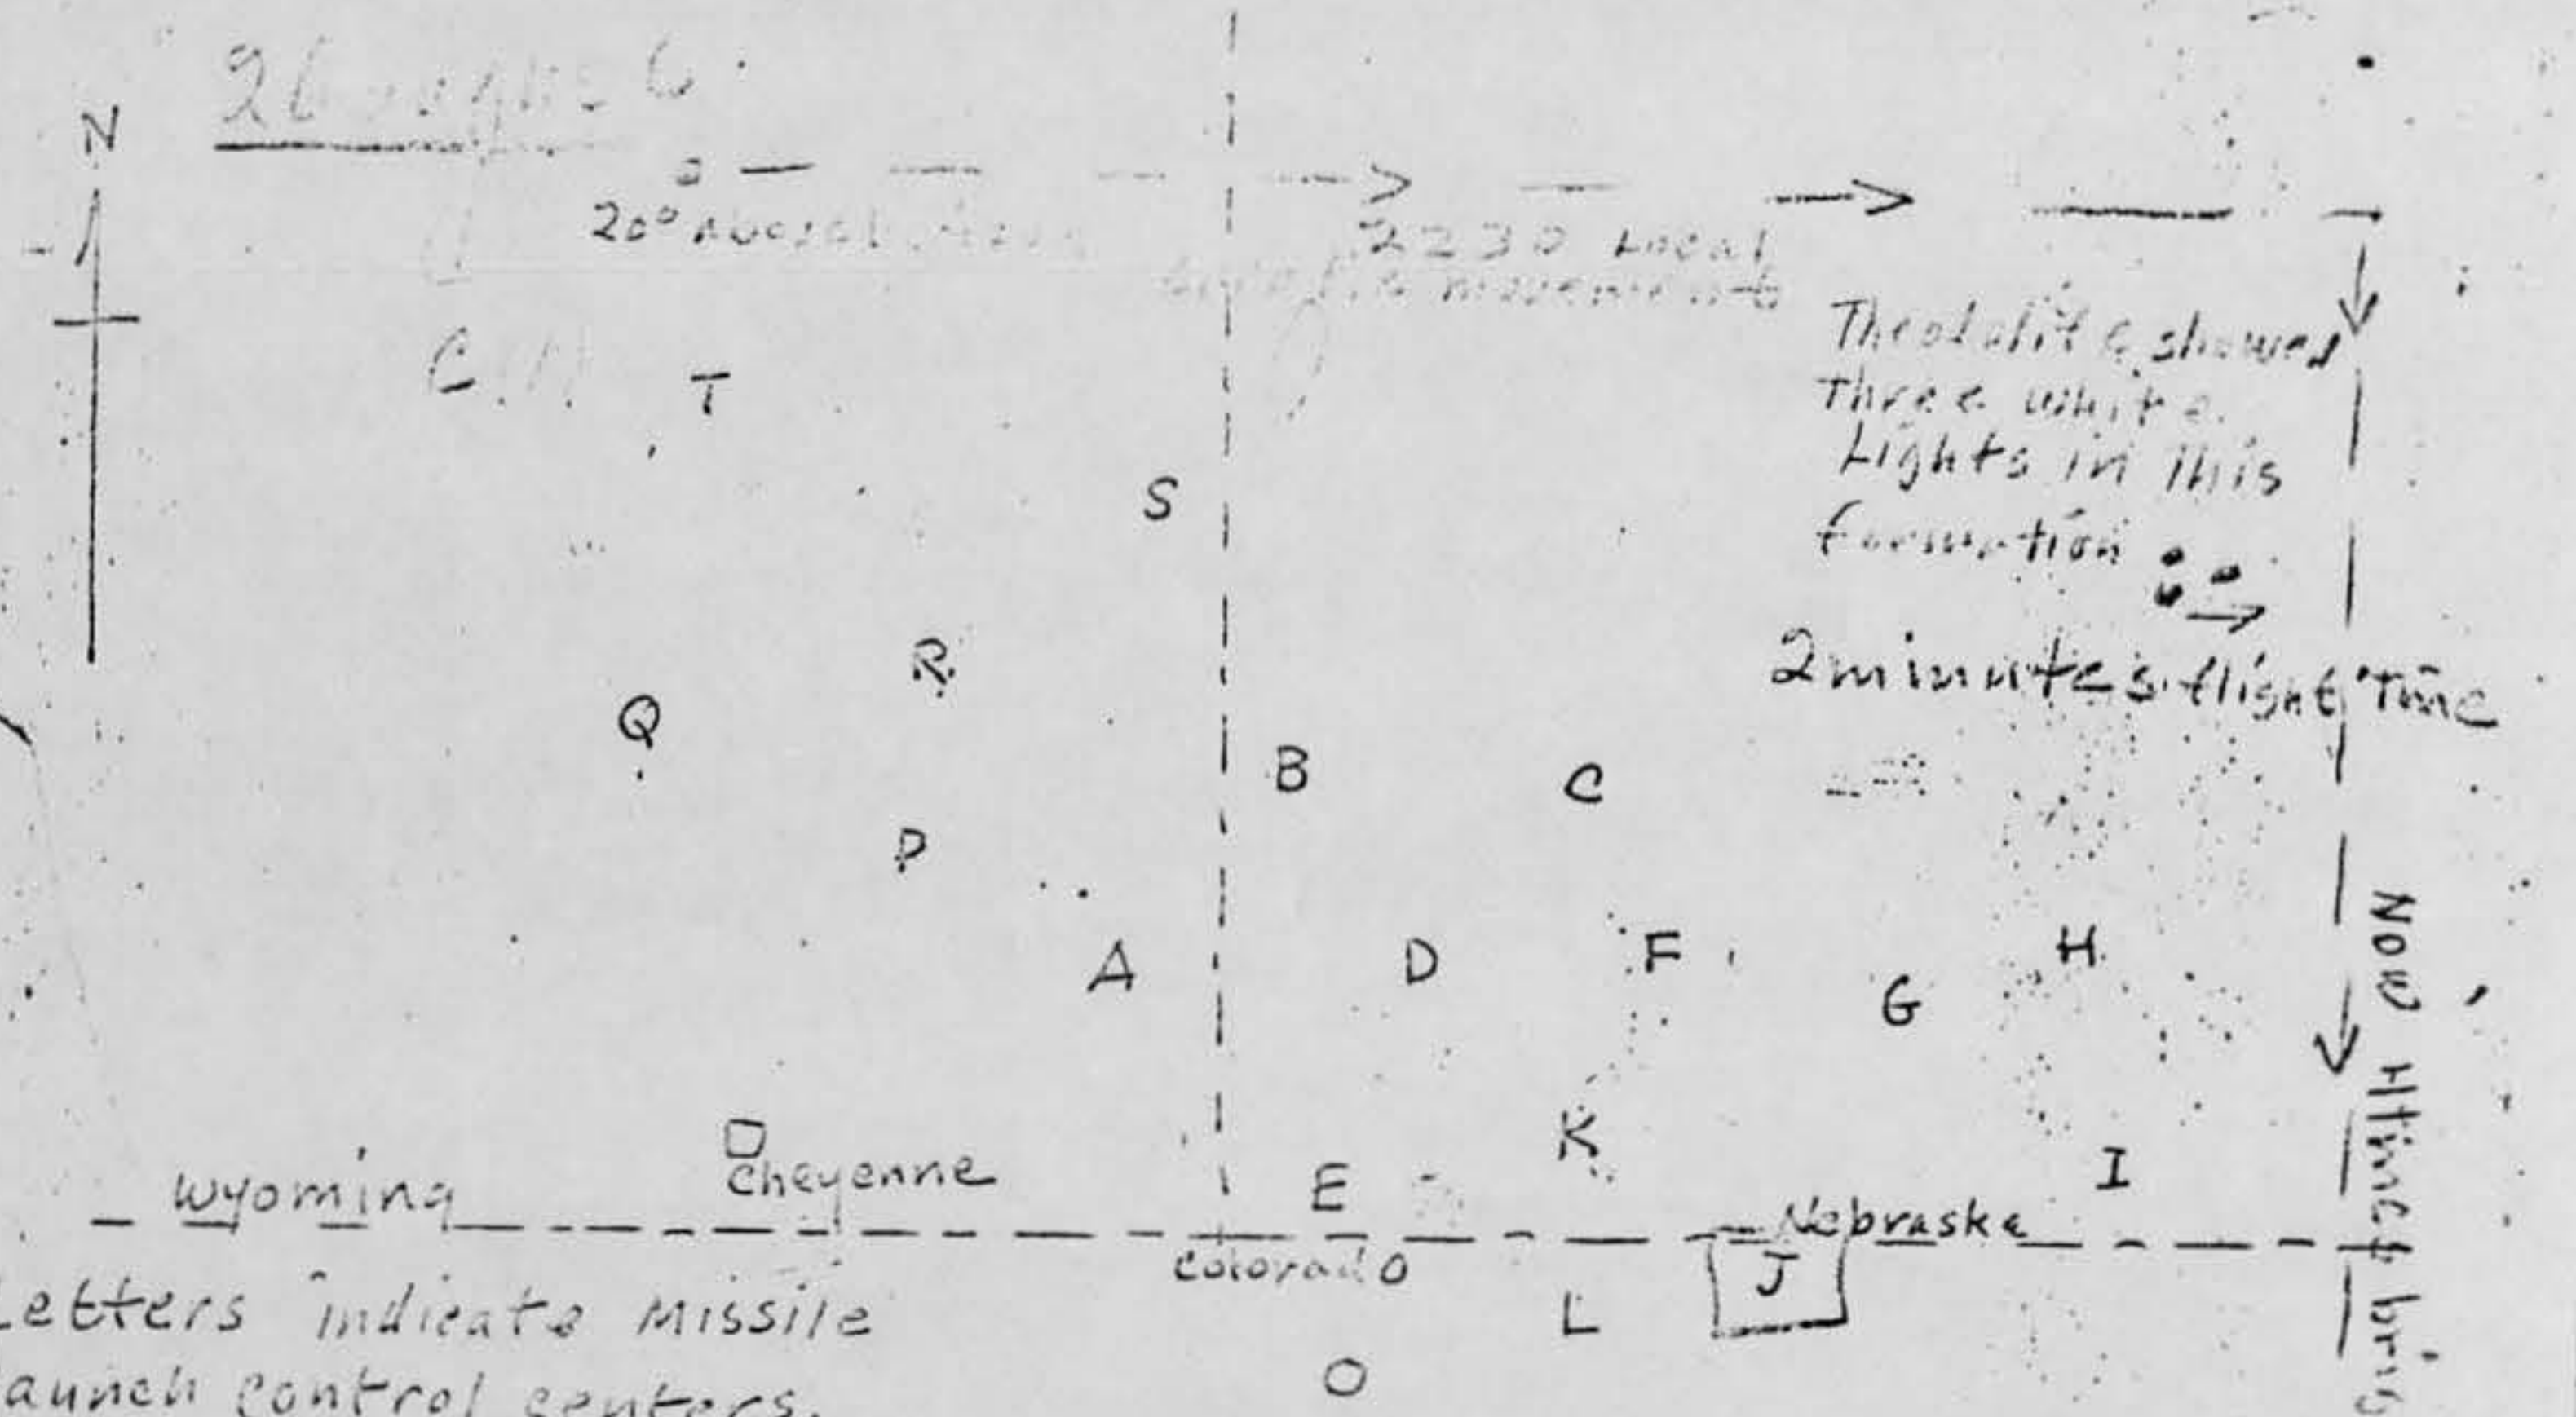 N
20°
2230 Local
movement
Theodolite showed
Three white
Lights in This
formation
2 minutes flight Time
T
S
R
Q
B
C
P
A
D
F
H
G
K
Cheyenne
Wyoming
E
I
Nebraska
Colorado
J
L
O
Letters indicate Missile
launch control centers.
NOW